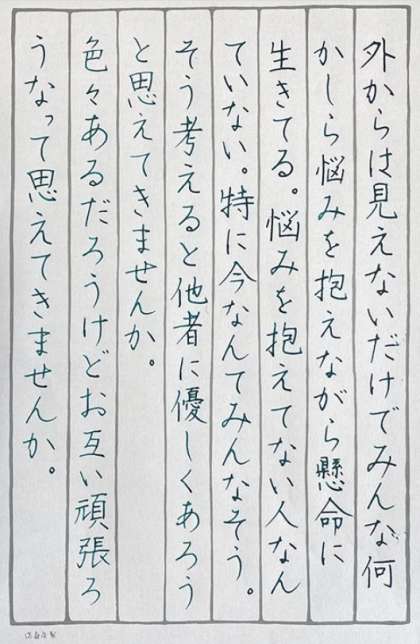 外からは見えないだけでみんな何
かしら悩みを抱えながら懸命に
生きてる。悩みを抱えてない人なん
ていない。特に今なんてみんなそう。
そう考えると他者に優しくあろう
と思えてきませんか。
色々あるだろうけどお互い頑張ろ
うなって思えてきませんか。